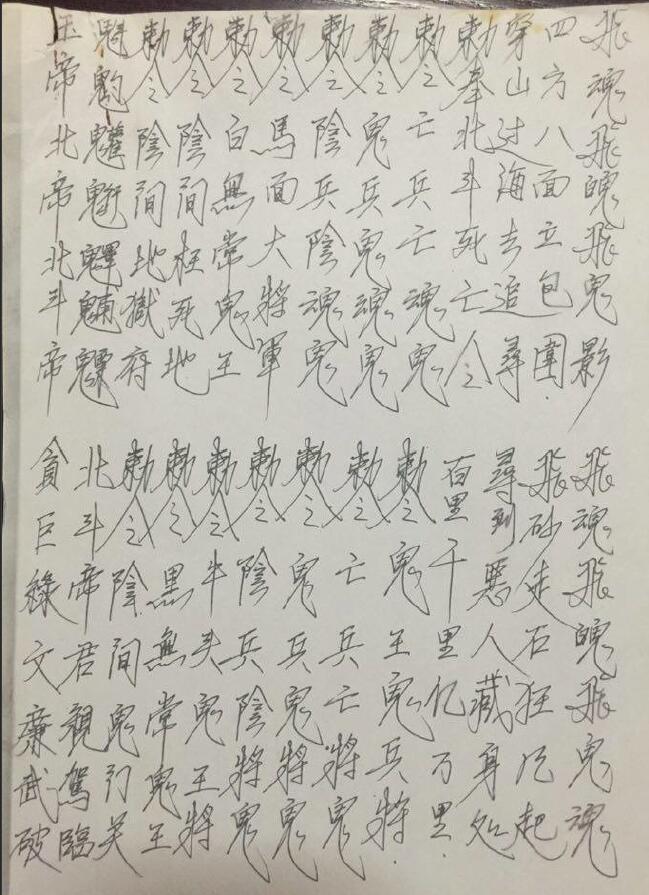 飛魂飛魄飛鬼影
四方八面立包圍
穿山过海去追尋
勅奉北斗死亡令
勅令亡兵亡魂鬼
勅令鬼兵鬼魂鬼
勅令陰兵陰魂鬼
勅令馬面大將軍
勅令白無常鬼王
勅令陰間枉死地
勅令陰間地獄府
魁魓魒
玉帝北帝北斗帝
飛魂飛魄飛鬼魂
飛砂走石狂风起
尋到惡人藏身处
百里千里亿万里
勅令鬼王鬼兵將
勅令亡兵亡將鬼
勅令鬼兵鬼將鬼
勅令陰兵陰將鬼
勅令牛头鬼王將
勅令黑無常鬼王
勅令陰間鬼门关
北斗帝君親駕臨
貪巨綠文廉武破